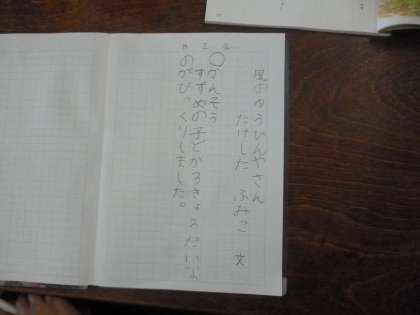 風のゆうびんやさん
たけした ふみこ 文
かんそう
すずめの子どがろきょうだいな
のがびっくりしました。